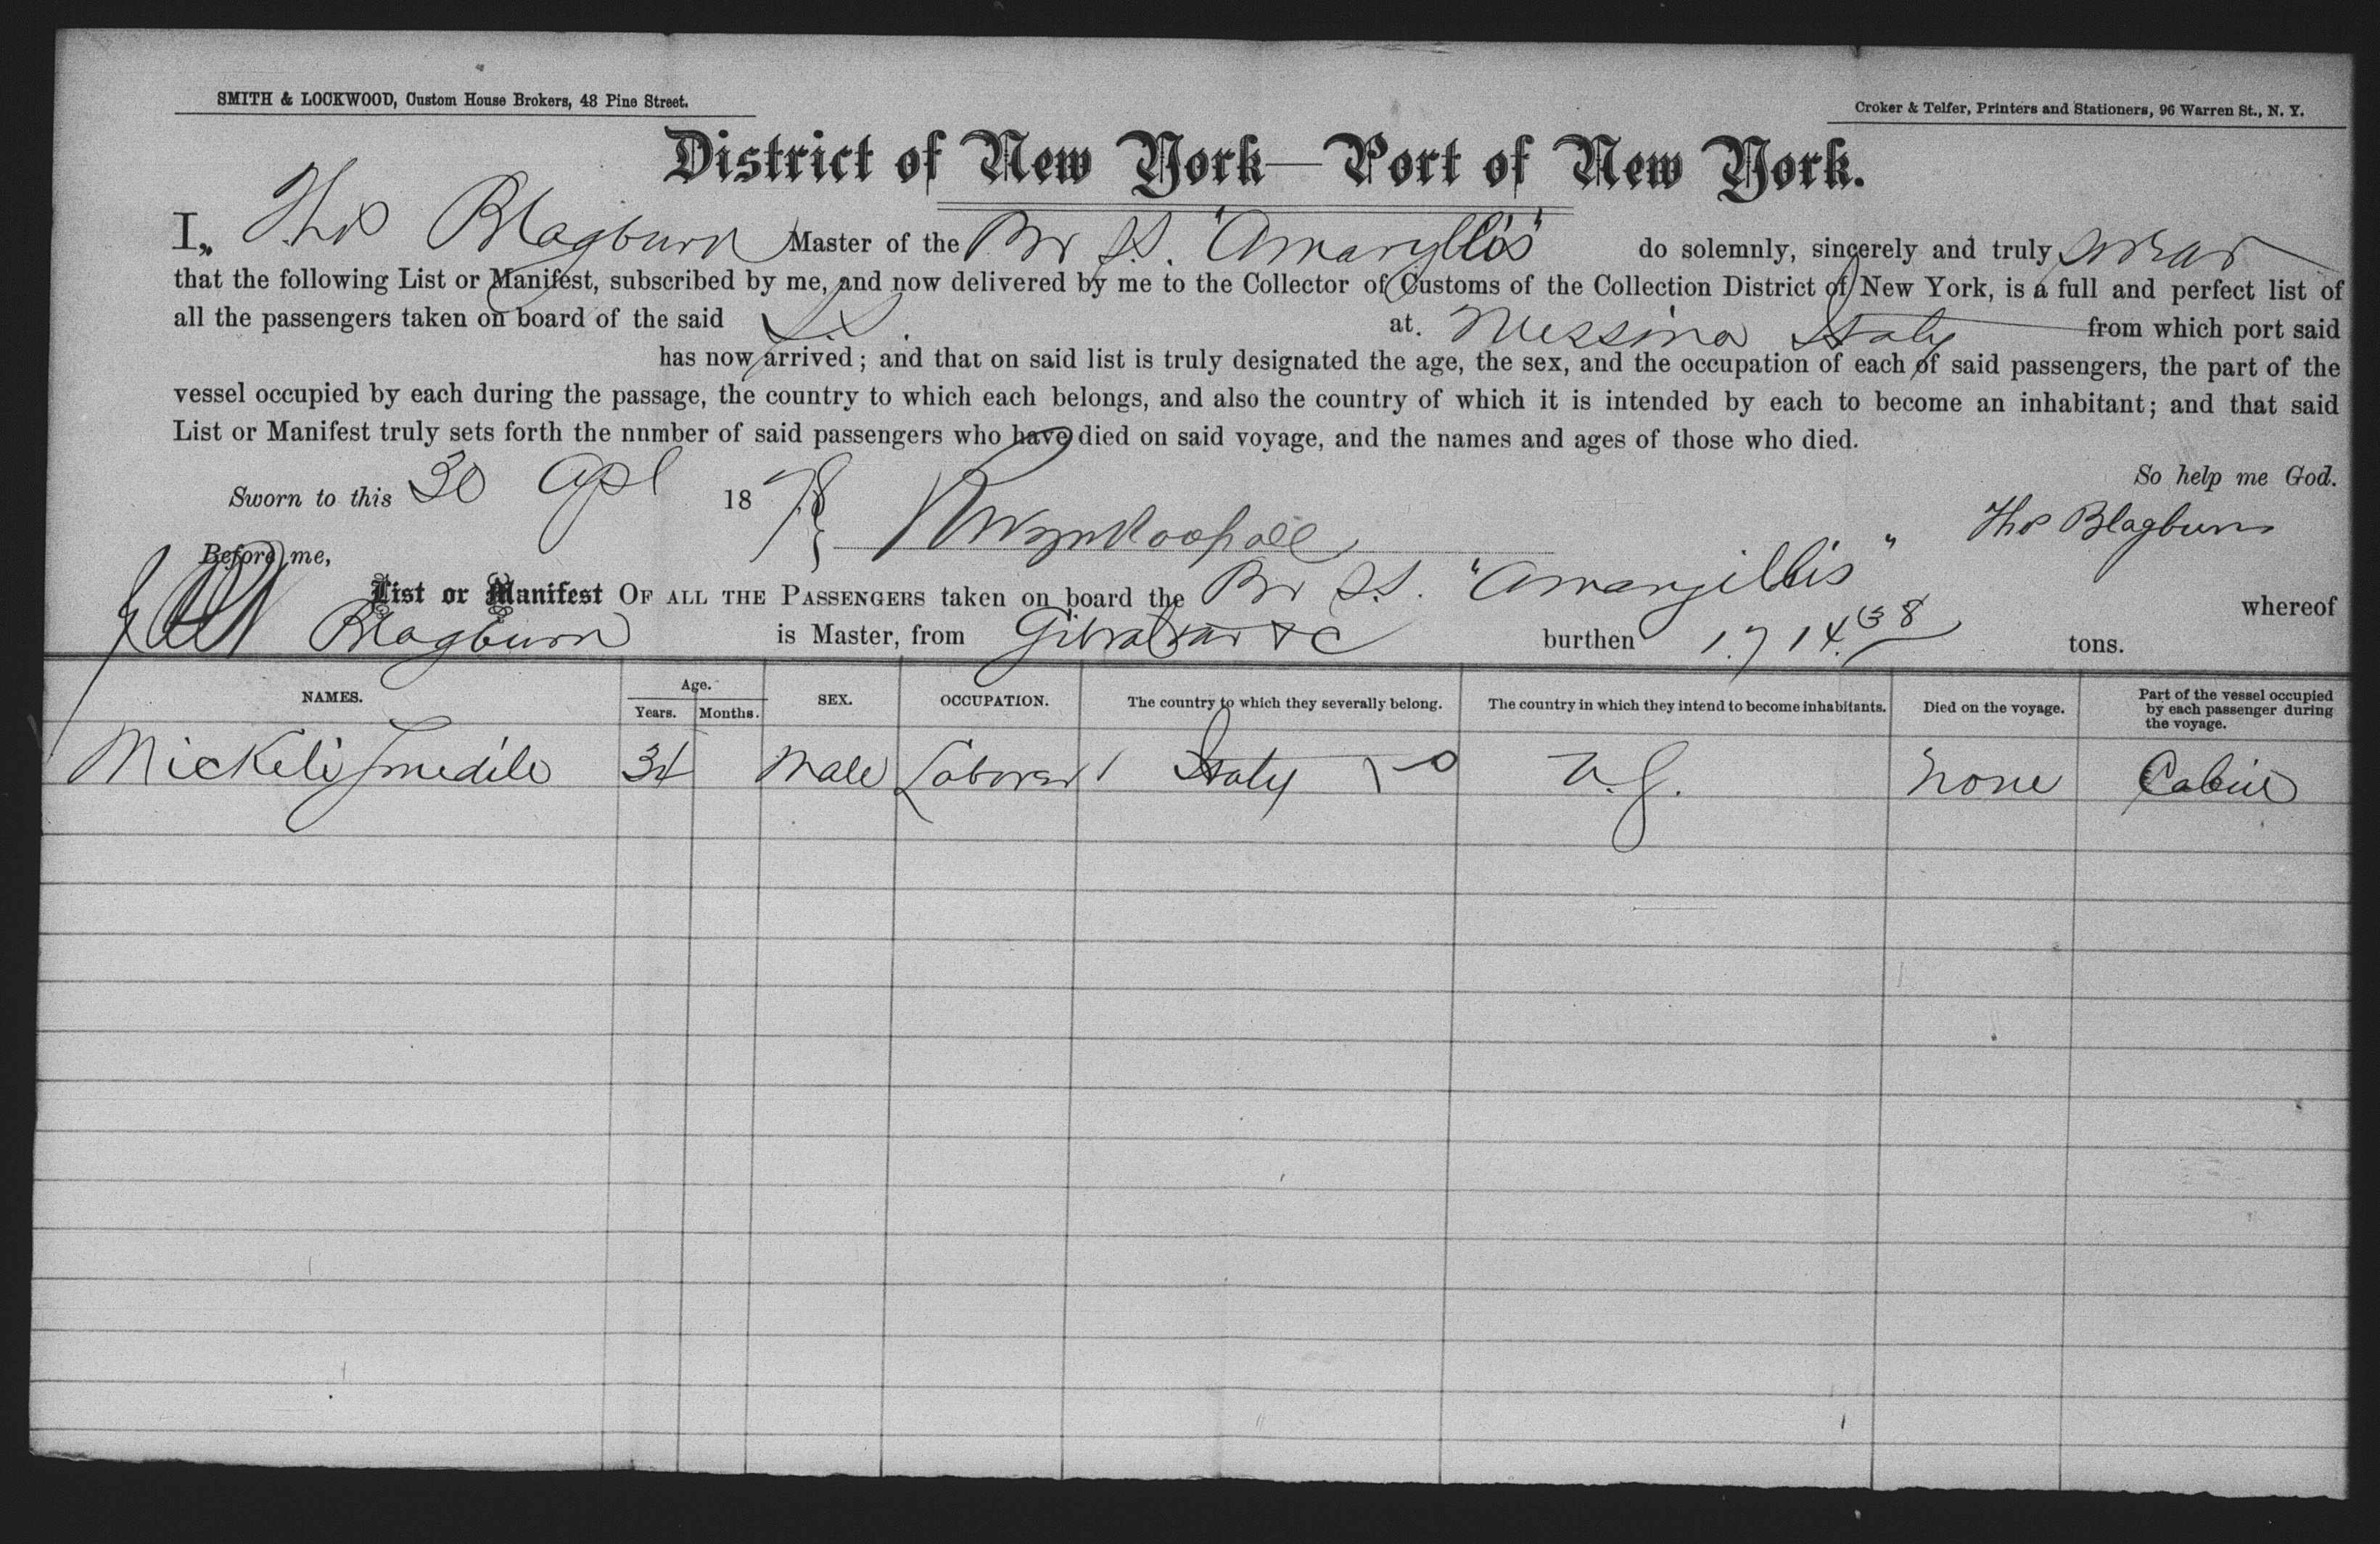 SMITH & LOCKWOOD, Custom House Brokers, 48 Pine Street.
Croker & Telfer, Printers and Stationers, 96 Warren St., N. Y.
District of New York—Port of New York.
I, Thos Blagburn Master of the Br S.S. "Amaryllis" do solemnly, sincerely and truly swear
that the following List or Manifest, subscribed by me, and now delivered by me to the Collector of Customs of the Collection District of New York, is a full and perfect list of
all the passengers taken on board of the said S.S. at Messina Italy from which port said
has now arrived; and that on said list is truly designated the age, the sex, and the occupation of each of said passengers, the part of the
vessel occupied by each during the passage, the country to which each belongs, and also the country of which it is intended by each to become an inhabitant; and that said
List or Manifest truly sets forth the nnmber of said passengers who have died on said voyage, and the names and ages of those who died.
So help me God.
Sworn to this 30 Apl 1878
Thos Blagburn
Before me,
List or Manifest OF ALL THE PASSENGERS taken on board the Br S.S. "Amaryillis" whereof
Blagburn is Master, from Gibraltar &c burthen 1714.38 tons.
NAMES. Age. Years. Months. SEX. OCCUPATION. The country to which they severally belong. The country in which they intend to become inhabitants. Died on the voyage. Part of the vessel occupied by each passenger during the voyage.
Mickeli 34 Male Laborer Italy U.S. None Cabin